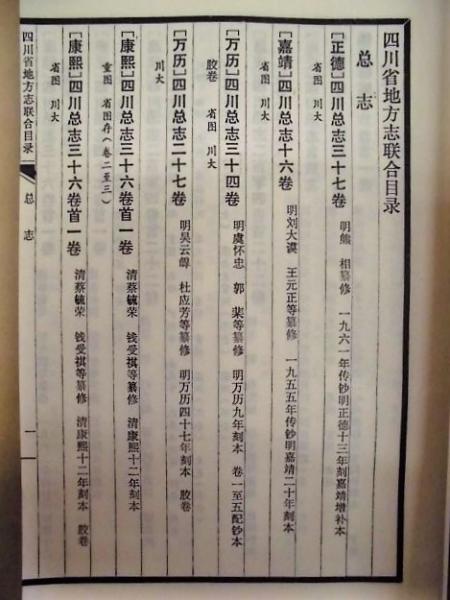 四川省地方志联合目录
总志
[正德]四川总志三十七卷 明熊 相纂修 一九六一年传钞明正德十三年刻嘉靖增补本
省图 川大
[嘉靖]四川总志十六卷 明刘大谟 王元正等纂修 一九五五年传钞明嘉靖二十年刻本
省图 川大
[万历]四川总志三十四卷 明虞怀忠 郭 棐等纂修 明万历九年刻本 卷一至五配钞本
胶卷 省图 川大
[万历]四川总志二十七卷 明吴云 杜应芳等纂修 明万历四十七年刻本 胶卷
川大
[康熙]四川总志三十六卷首一卷 清蔡毓荣 钱受祺等纂修 清康熙十二年刻本
重图 省图存(卷二至三)
[康熙]四川总志三十六卷首一卷 清蔡毓荣 钱受祺等纂修 清康熙十二年刻本 胶卷
省图 川大
四川省地方志联合目录 总志 一